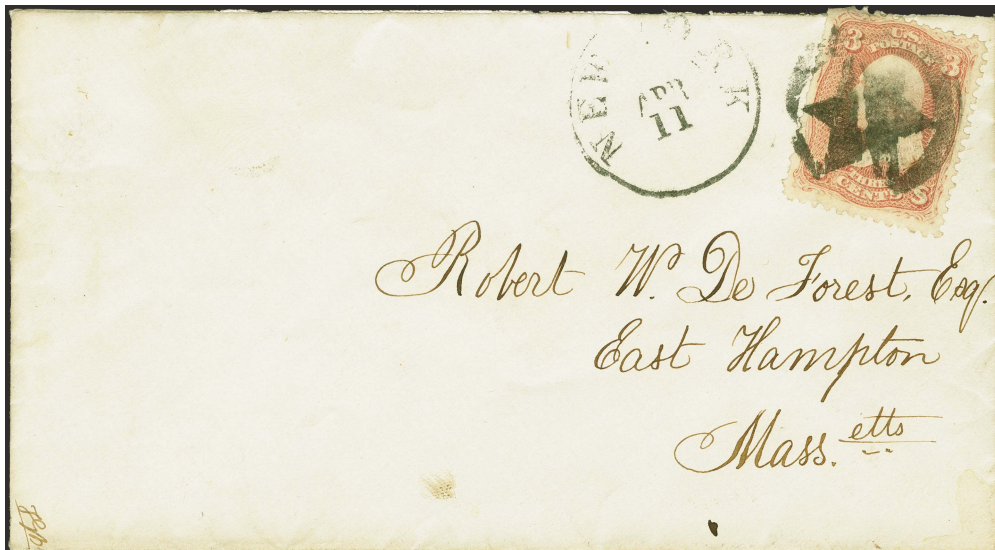 NEW YORK
APR
11
3 U.S. 3
POSTAGE
THREE
CENTS
Robert W. De Forest, Esq.
East Hampton
Mass.etts